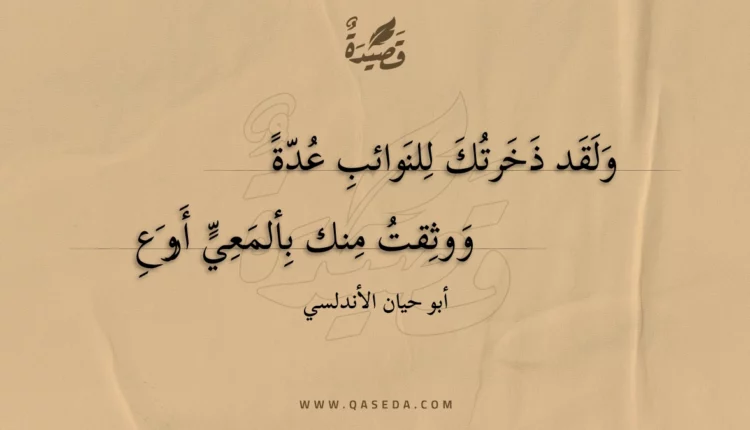 قَصِيدَةٌ
وَلَقَد ذَخَرتُكَ لِلنَوائبِ عُدّةً
وَوثِقتُ مِنك بِألمَعِيٍّ أَروَعِ
أبو حيان الأندلسي
WWW.QASEDA.COM